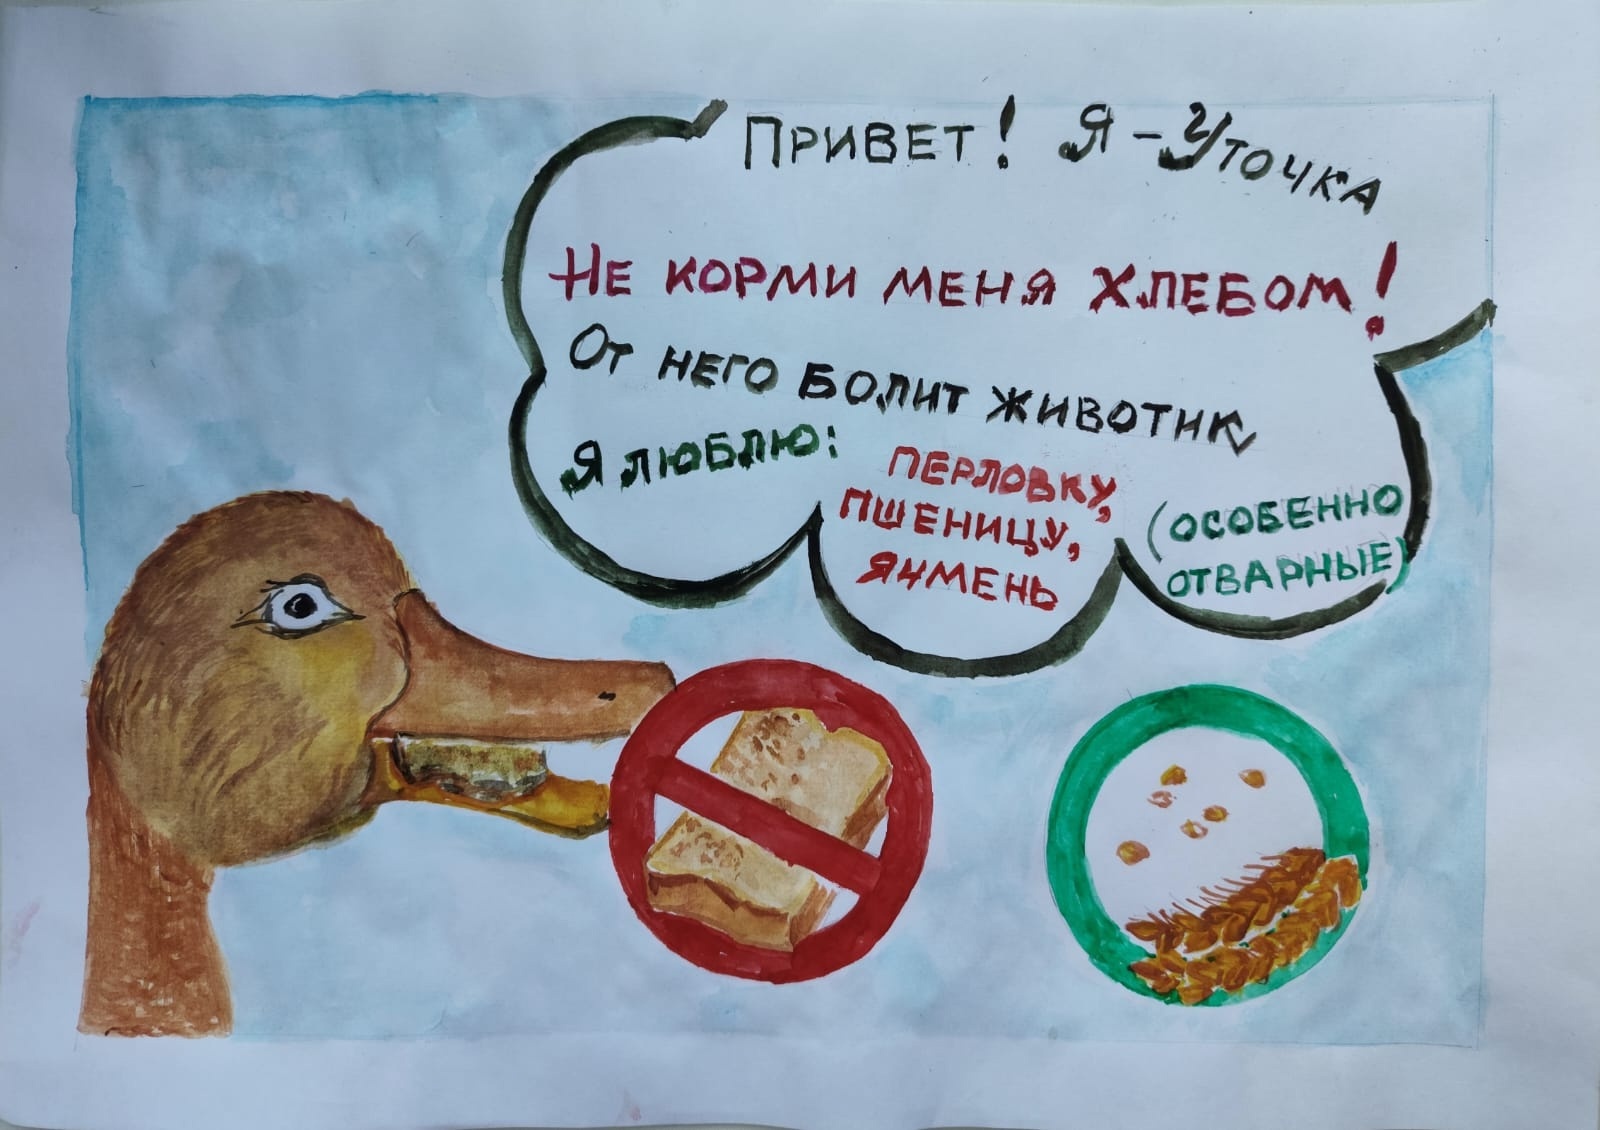 Привет! Я - Уточка
Не корми меня хлебом!
От него болит животик,
Я люблю:
перловку,
пшеницу,
ячмень
(особенно
отварные)